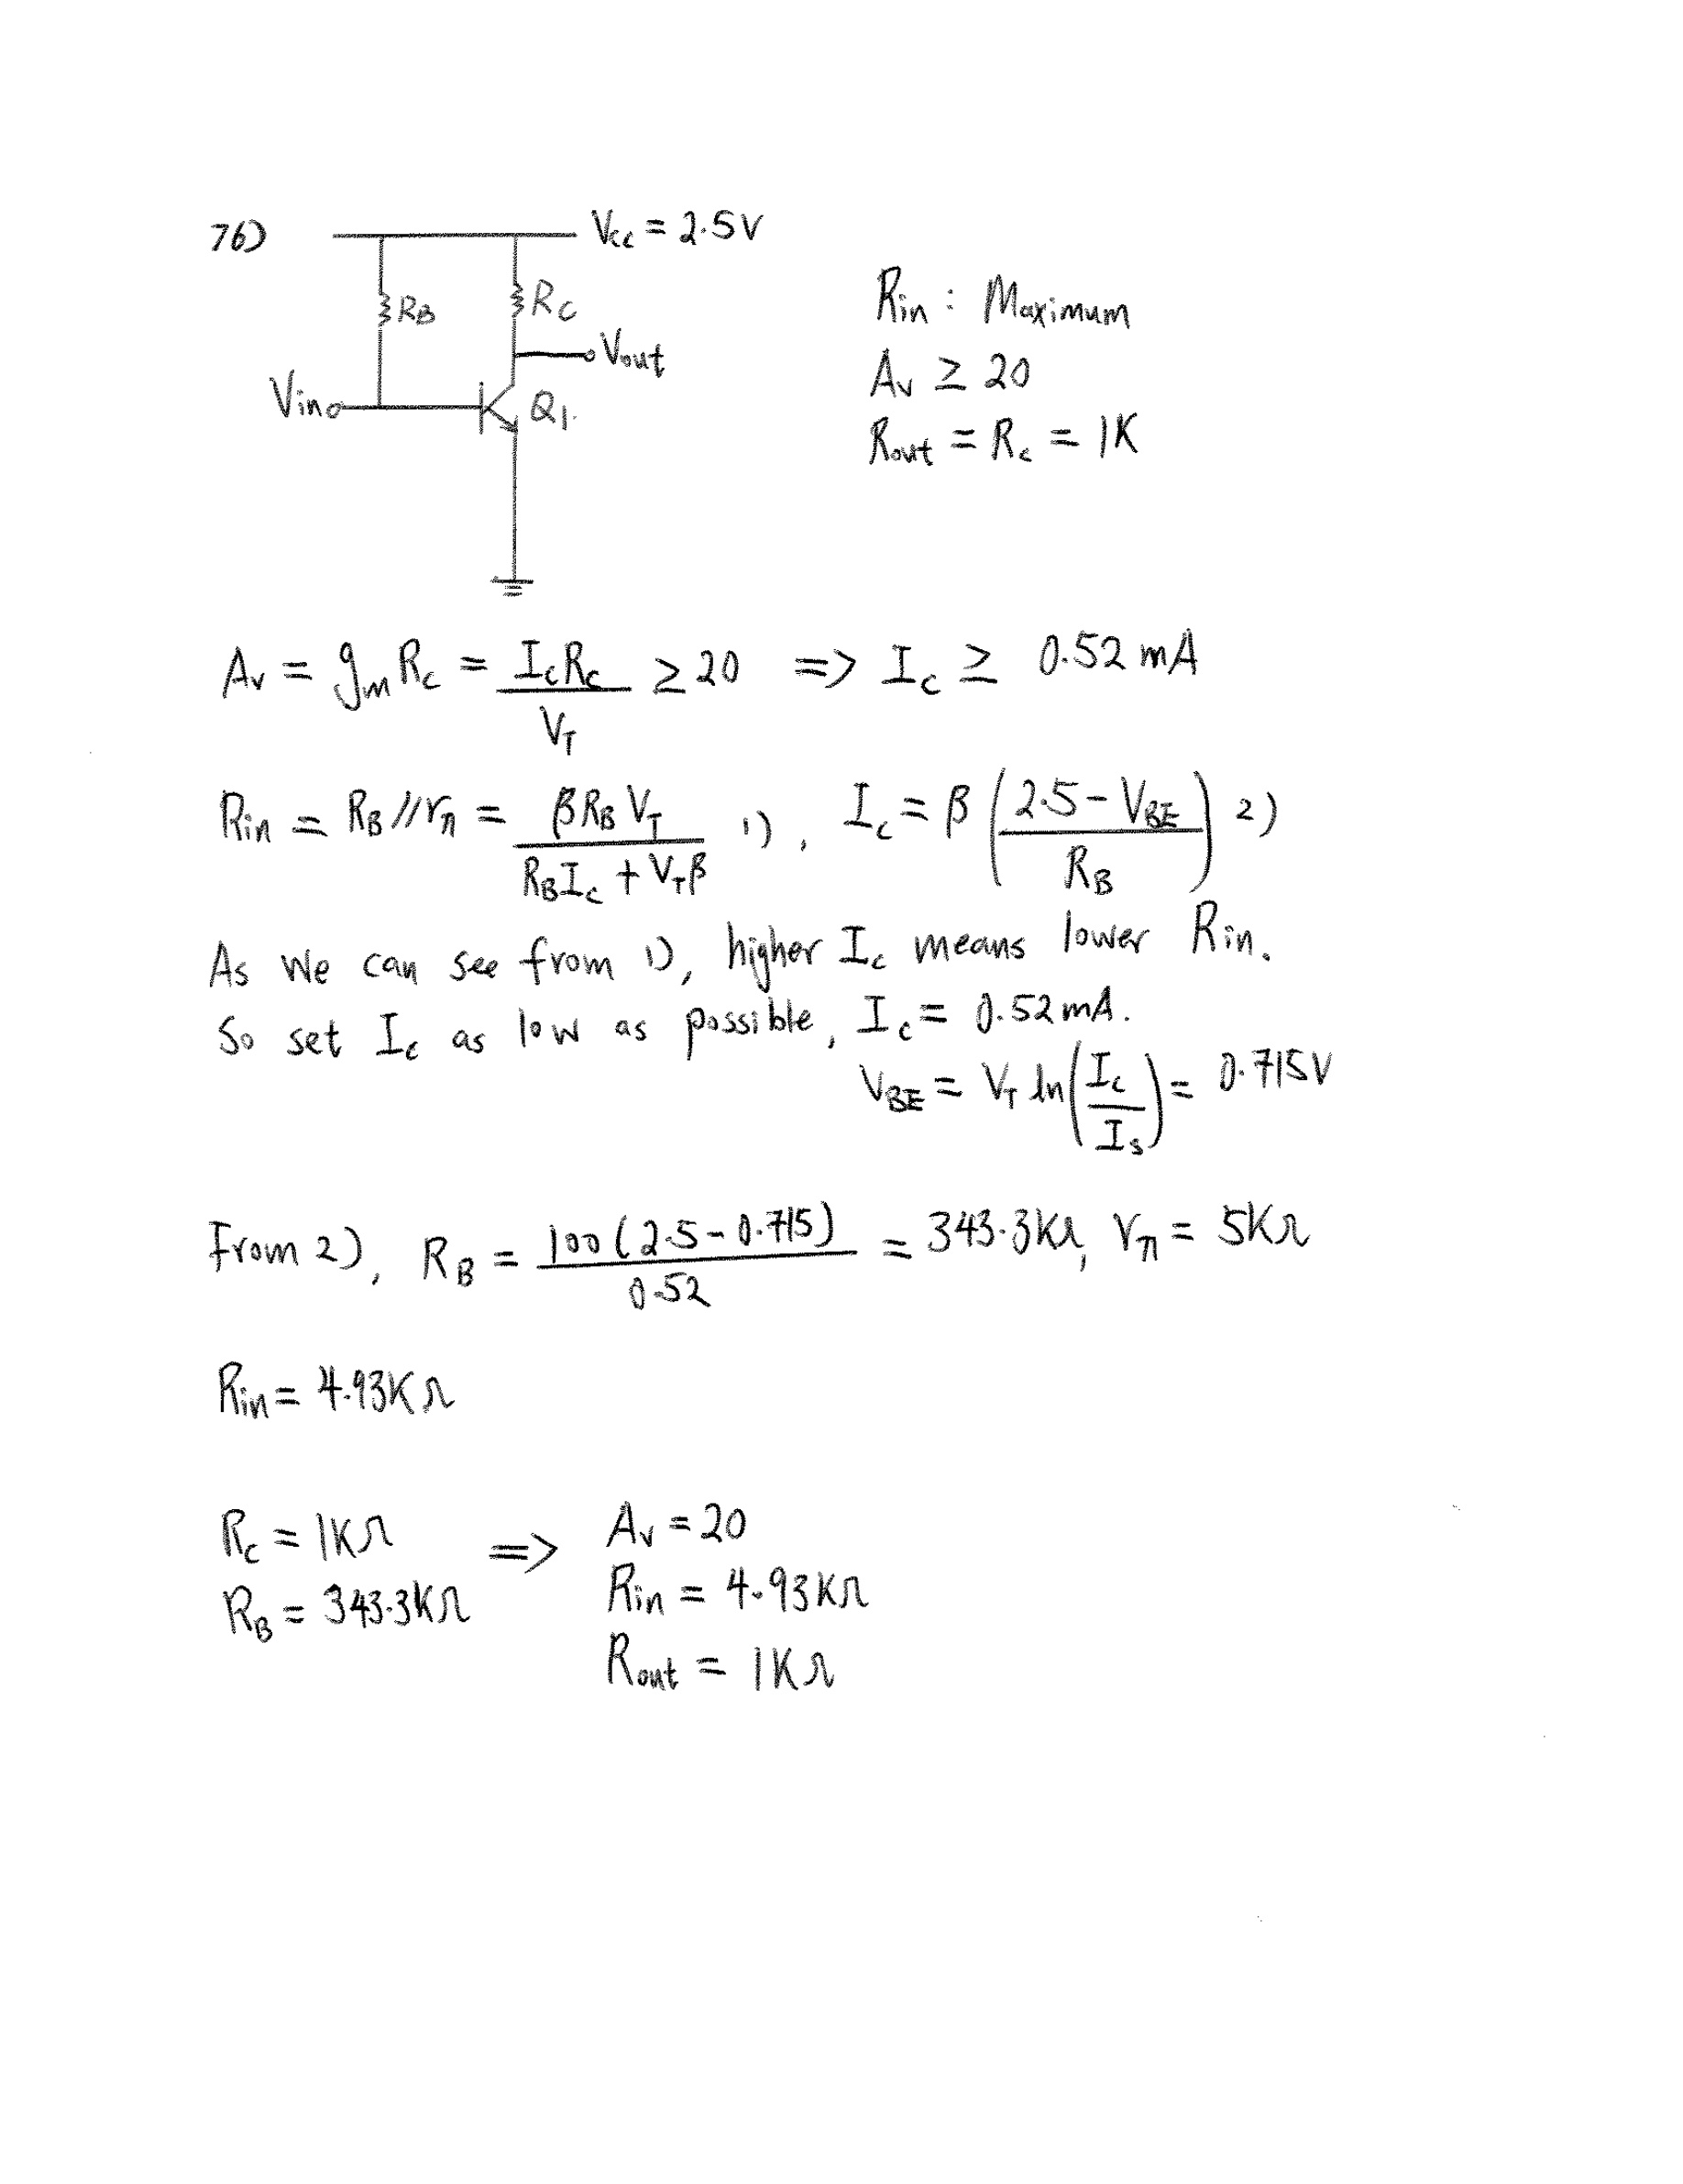 76)
Vcc = 2.5V
RB
RC
Vout
Vin
Q1
Rin : Maximum
Av ≥ 20
Rout = Rc = 1K
Av = gm Rc = IcRc / VT ≥ 20 => Ic ≥ 0.52 mA
Rin = RB // rπ = βRB VT / (RBIc + VTβ) 1), Ic = β ((2.5 - VBE) / RB) 2)
As we can see from 1), higher Ic means lower Rin.
So set Ic as low as possible, Ic = 0.52 mA.
VBE = VT ln(Ic / Is) = 0.715V
From 2), RB = 100 (2.5 - 0.715) / 0.52 = 343.3KΩ, rπ = 5KΩ
Rin = 4.93KΩ
Rc = 1KΩ => Av = 20
RB = 343.3KΩ Rin = 4.93KΩ
Rout = 1KΩ